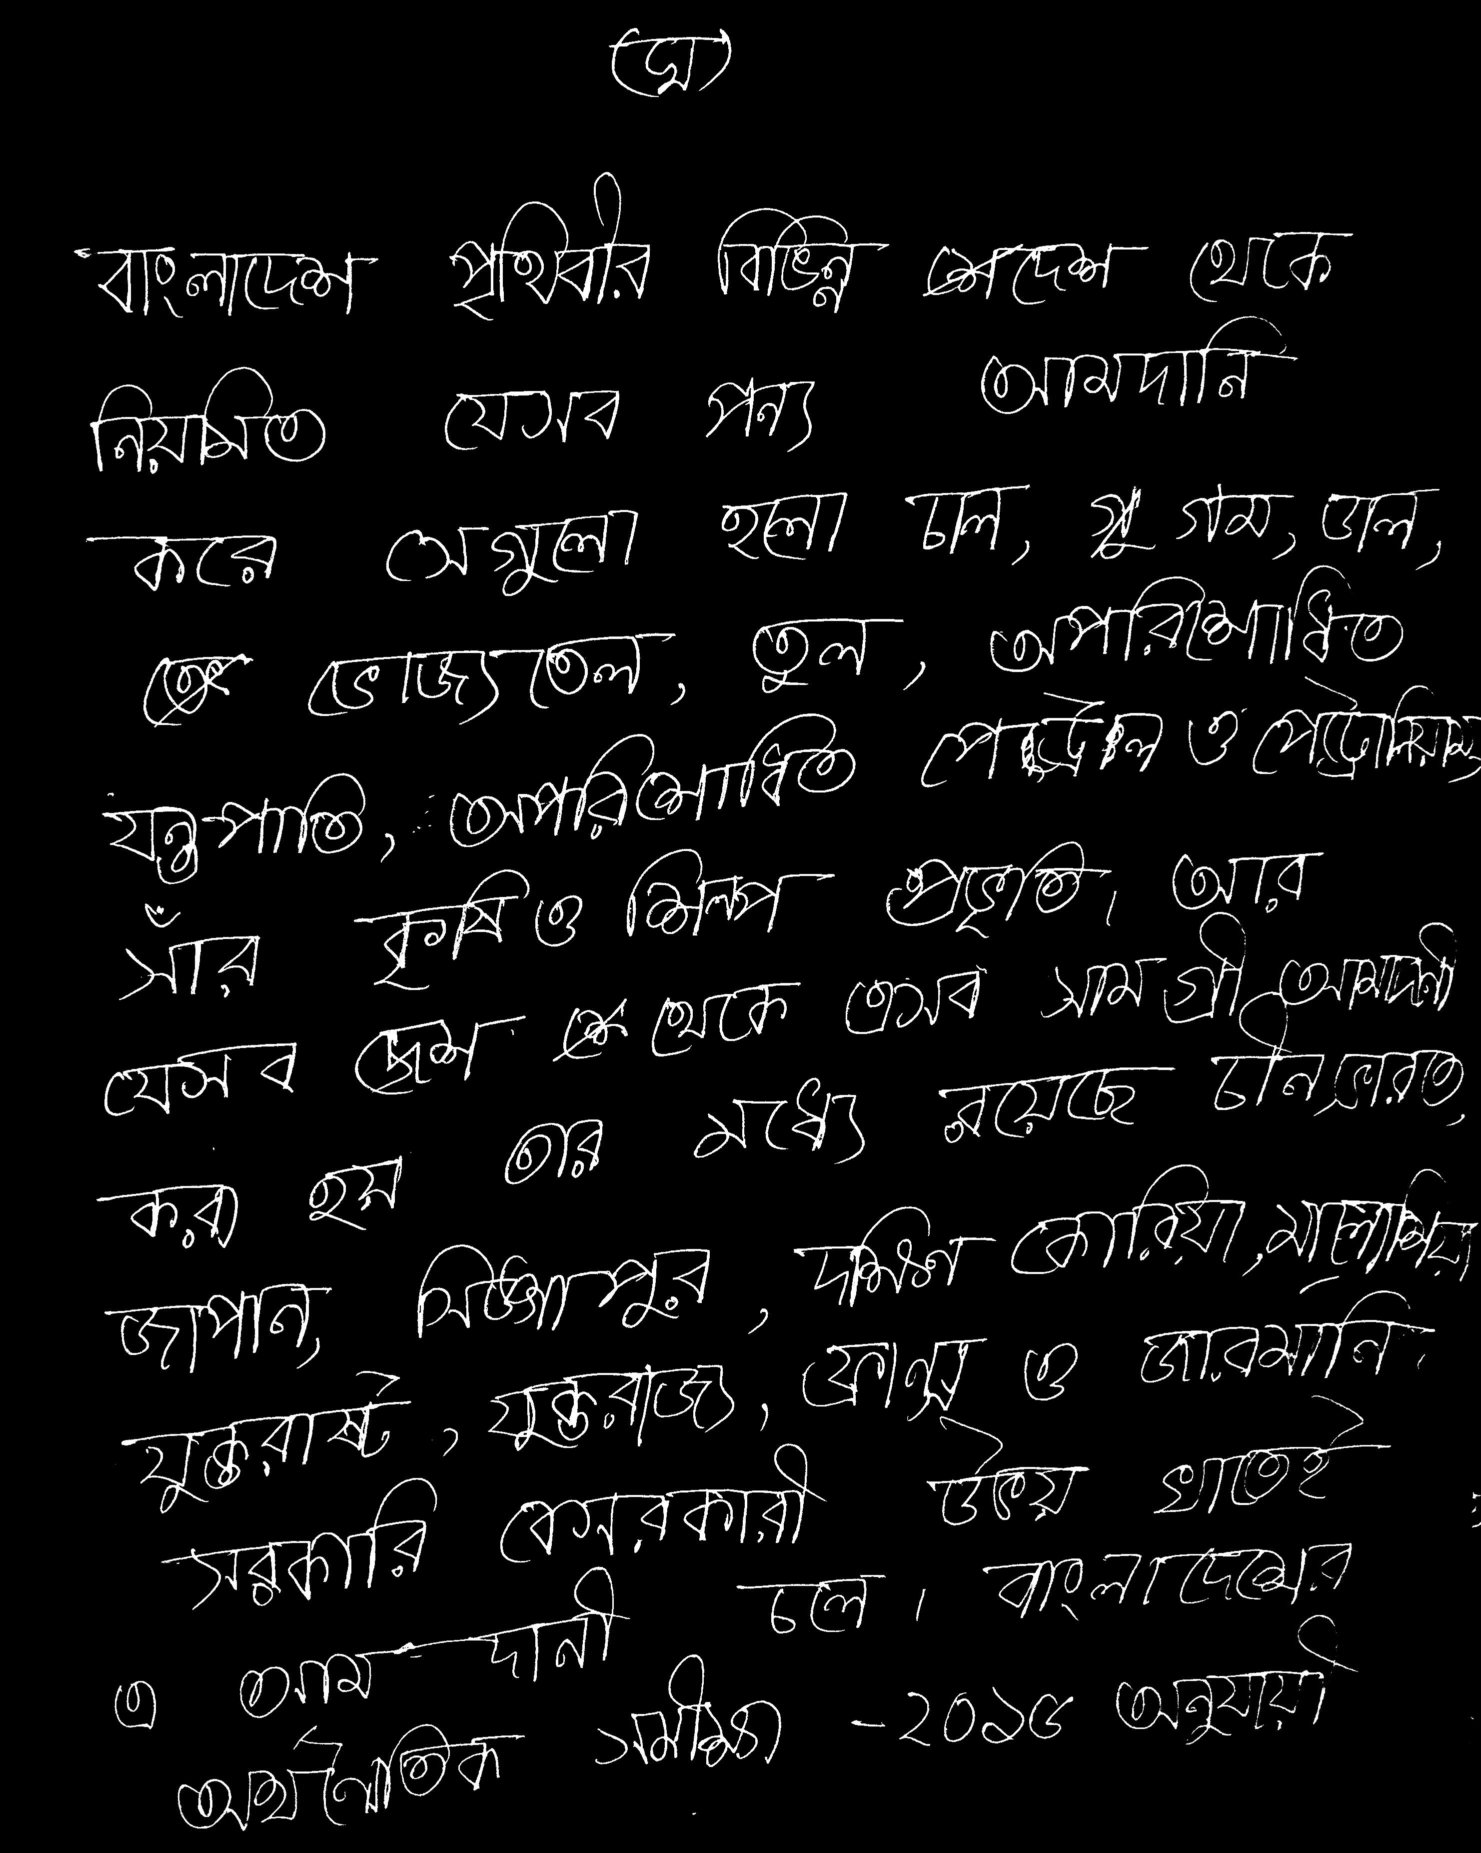 বাংলাদেশ পৃথিবীর বিভিন্ন দেশ থেকে
নিয়মিত যেসব পন্য আমদানি
করে সেগুলো হলো চাল, গম, ডাল,
ভোজ্যতেল, তুল, অপরিশোধিত
যন্ত্রপাতি, অপরিশোধিত পেট্রোল ও পেট্রোলিয়াম
সাঁর কৃষি ও শিল্প প্রভৃতি। আর
যেসব দেশ থেকে এসব সামগ্রী আমদানী
করা হয় তার মধ্যে রয়েছে চীন, ভারত,
জাপান, সিঙ্গাপুর, দক্ষিণ কোরিয়া, মালোশিয়া
যুক্তরাষ্ট, যুক্তরাজ্য, ফ্রান্স ও জারমানি।
সরকারি বেসরকারী উভয় খাতেই
এ আমদানী চলে। বাংলাদেশের
অর্থনৈতিক সমীক্ষা -২০১৫ অনুযায়ী